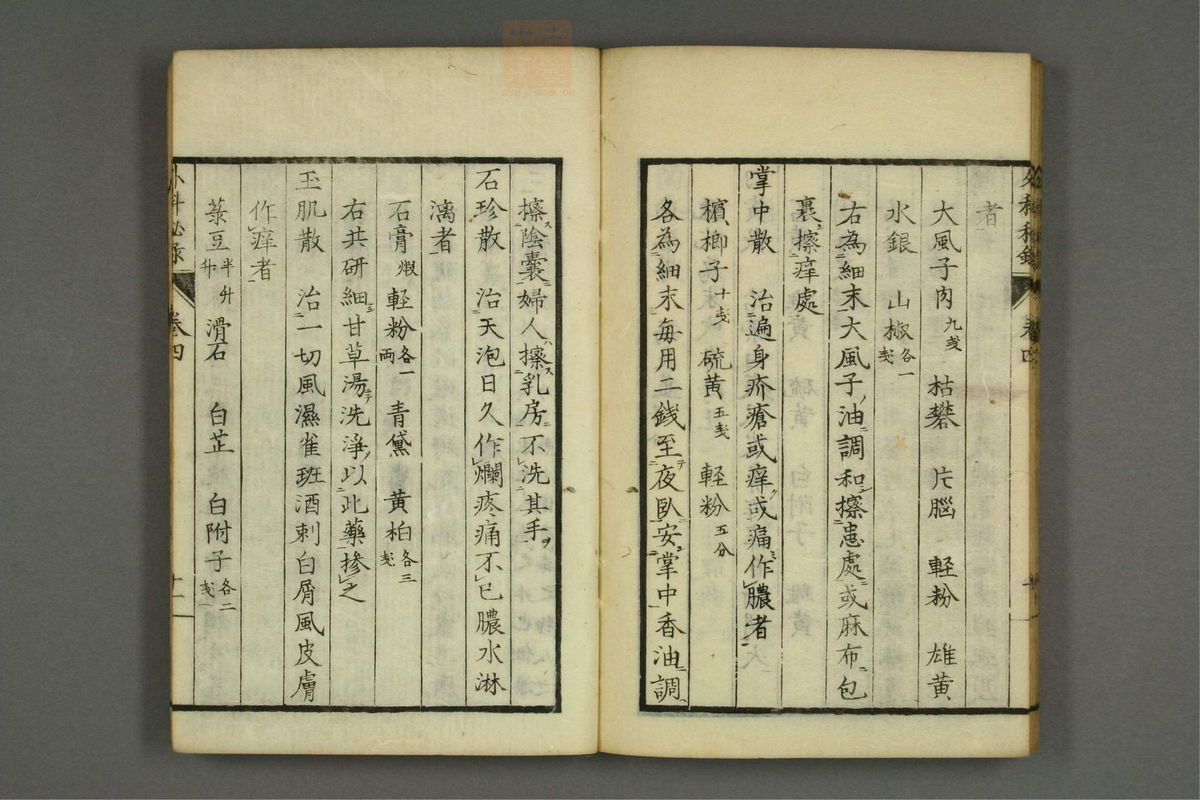 者
大風子肉九戔 枯礬 片腦 輕粉 雄黃
水銀 山椒各一戔
右為細末大風子油調和擦患處或麻布包
裹擦痒處
掌中散 治遍身疥瘡或痒或痛作膿者
檳榔子十戔 硫黃五戔 輕粉五分
各為細末每用二錢至夜臥安掌中香油調
擦陰囊婦人擦乳房不洗其手
石珍散 治天泡日久作爛疼痛不已膿水淋
漓者
石膏煅 軽粉各一両 青黛 黃柏各三戔
右共研細甘草湯洗淨以此藥摻之
玉肌散 治一切風濕雀斑酒刺白屑風皮膚
作痒者
菉豆半升 滑石 白芷 白附子各二戔
外科秘录 卷四 十一